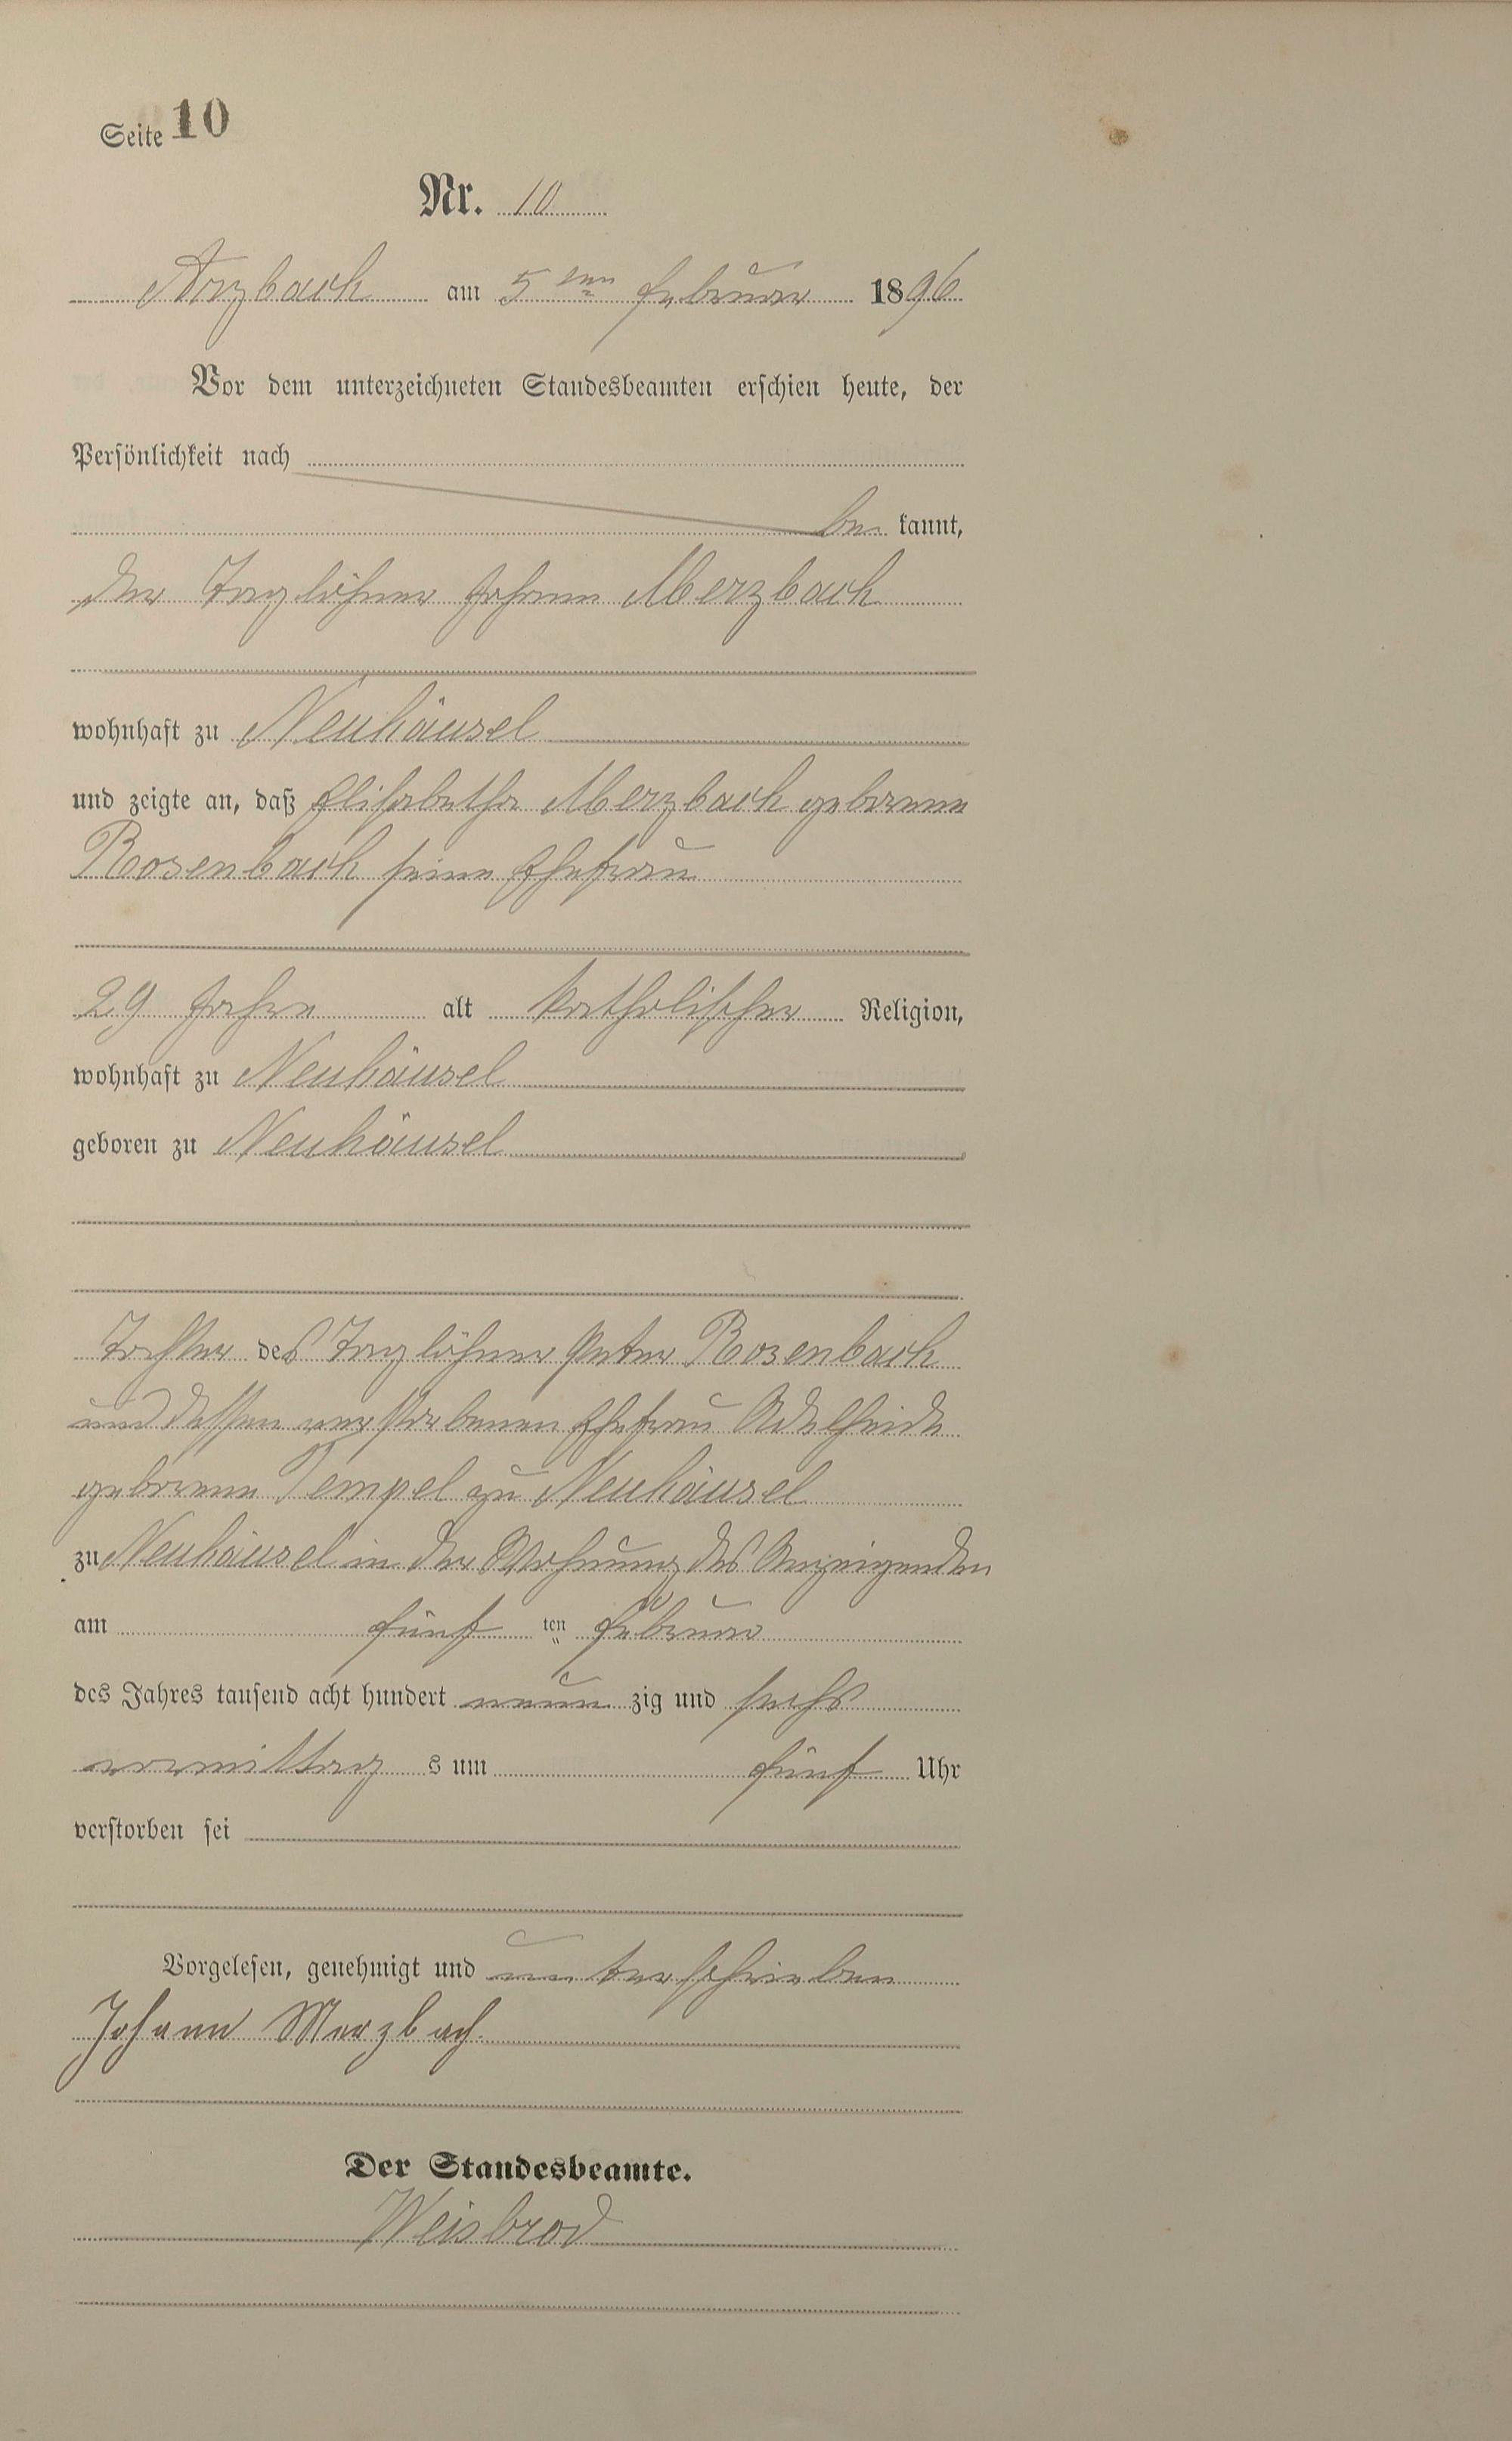 Seite 10
Nr. 10
Arzbach am 5ten Februar 1896
Vor dem unterzeichneten Standesbeamten erschien heute, der
Persönlichkeit nach
be kannt,
der Taglöhner Johann Merzbach
wohnhaft zu Neuhäusel
und zeigte an, daß Elisabetha Merzbach geborene
Rosenbach seine Ehefrau
29 Jahre alt katholischer Religion,
wohnhaft zu Neuhäusel
geboren zu Neuhäusel
Tochter des Taglöhner Peter Rosenbach
und dessen verstorbenen Ehefrau Adelheide
geborene Tempel zu Neuhäusel
zu Neuhäusel in der Wohnung des Anzeigenden
am fünf ten Februar
des Jahres tausend acht hundert neun zig und sechs
vormittag s um fünf Uhr
verstorben sei
Vorgelesen, genehmigt und unterschrieben
Johann Merzbach.
Der Standesbeamte.
Weisbrod